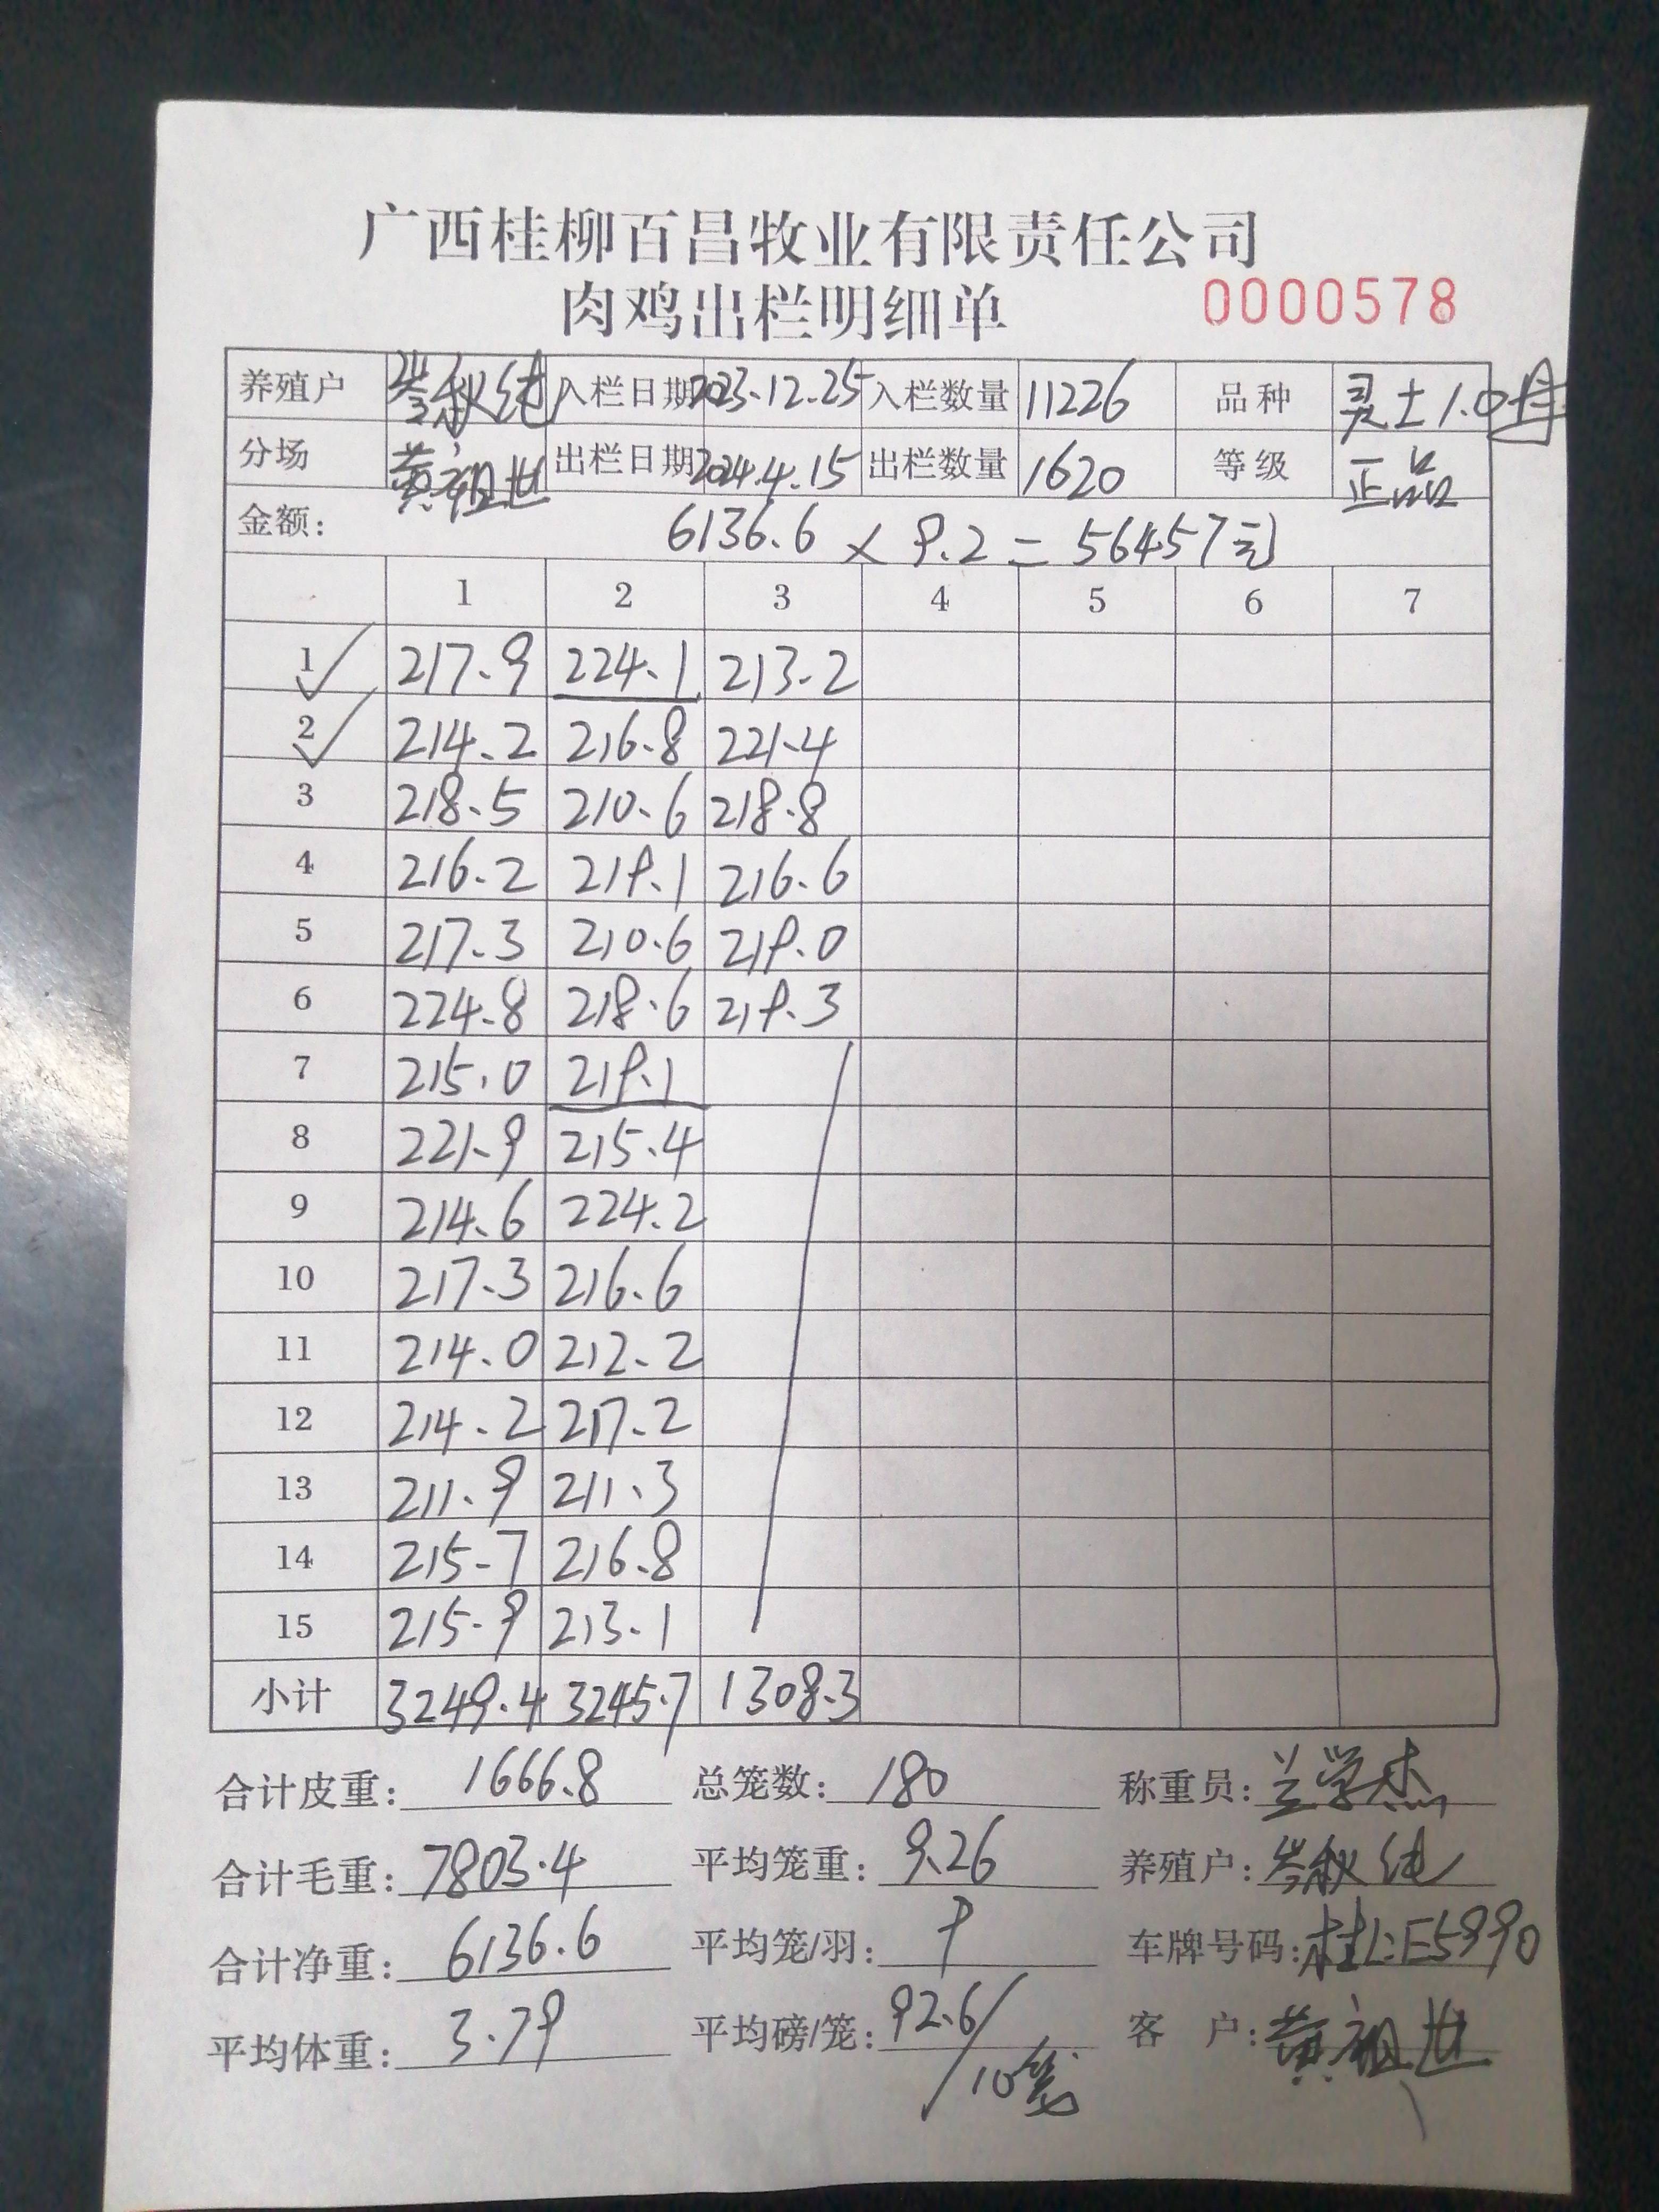 广西桂柳百昌牧业有限责任公司
肉鸡出栏明细单 0000578
养殖户 岑秋纯 入栏日期 2023.12.25 入栏数量 11226 品种 灵土1.0母
分场 黄祖世 出栏日期 2024.4.15 出栏数量 1620 等级 正品
金额: 6136.6 × 9.2 = 56457元
1 2 3 4 5 6 7
1 217.9 224.1 213.2
2 214.2 216.8 221.4
3 218.5 210.6 218.8
4 216.2 219.1 216.6
5 217.3 210.6 219.0
6 224.8 218.6 219.3
7 215.0 219.1
8 221.9 215.4
9 214.6 224.2
10 217.3 216.6
11 214.0 212.2
12 214.2 217.2
13 211.9 211.3
14 215.7 216.8
15 215.9 213.1
小计 3249.4 3245.7 1308.3
合计皮重: 1666.8 总笼数: 180 称重员: 兰学杰
合计毛重: 7803.4 平均笼重: 9.26 养殖户: 岑秋纯
合计净重: 6136.6 平均笼/羽: 9 车牌号码: 桂L:E5990
平均体重: 3.79 平均磅/笼: 92.6/10笼 客 户: 黄祖世